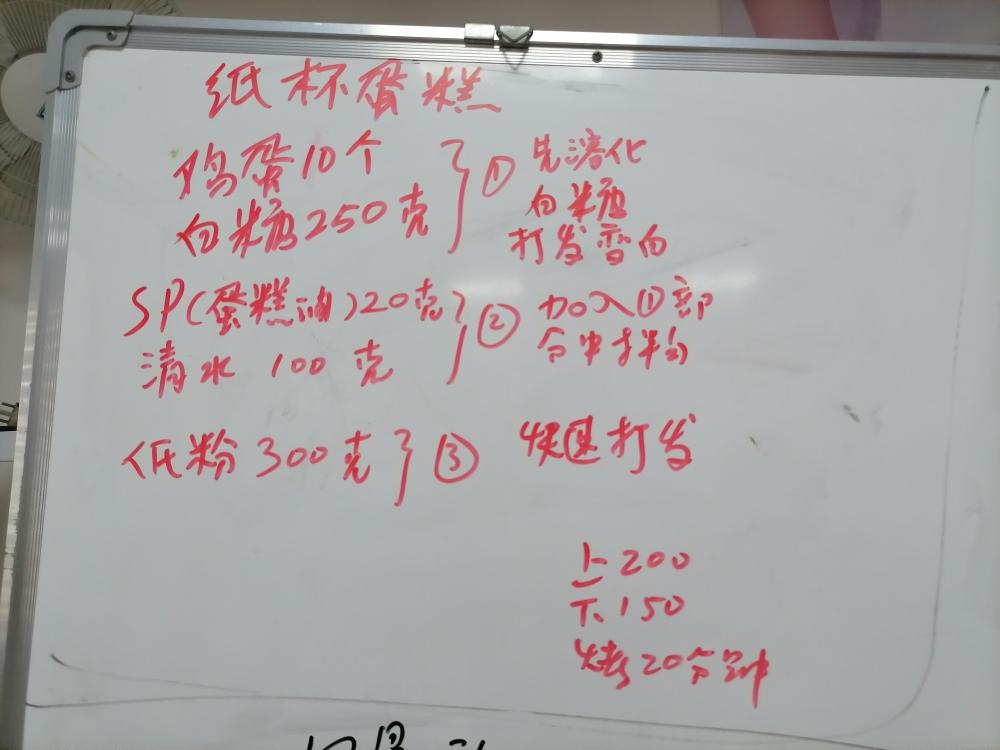 纸杯蛋糕
鸡蛋10个
白糖250克
} ① 先溶化
白糖
打发变白
SP(蛋糕油)20克
清水 100 克
} ② 加入①部
分中拌匀
低粉300克} ③ 快速打发
上200
下150
烤20分钟